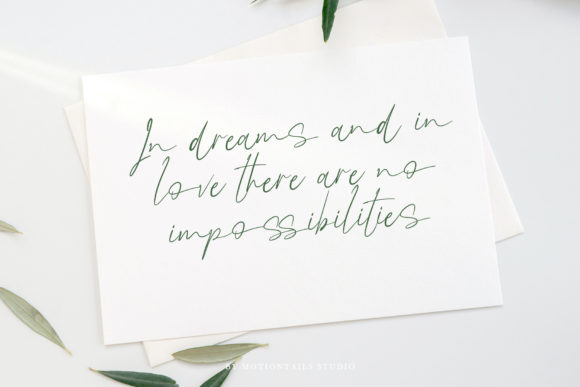 In dreams and in
love there are no
impossibilities
BY MOTIONTAILS STUDIO